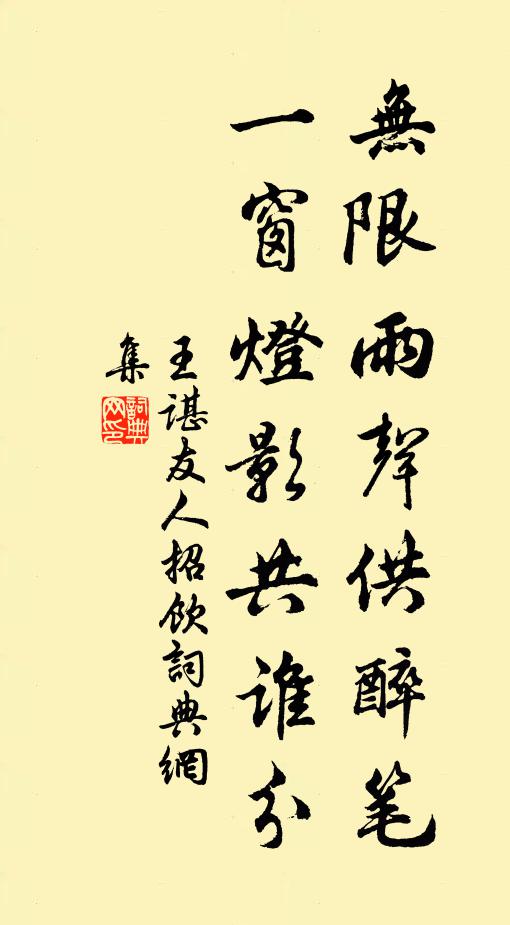 無限雨聲供醉笔
一窗燈影共誰分
王諶友人招飲詞典網
集
詞典網印